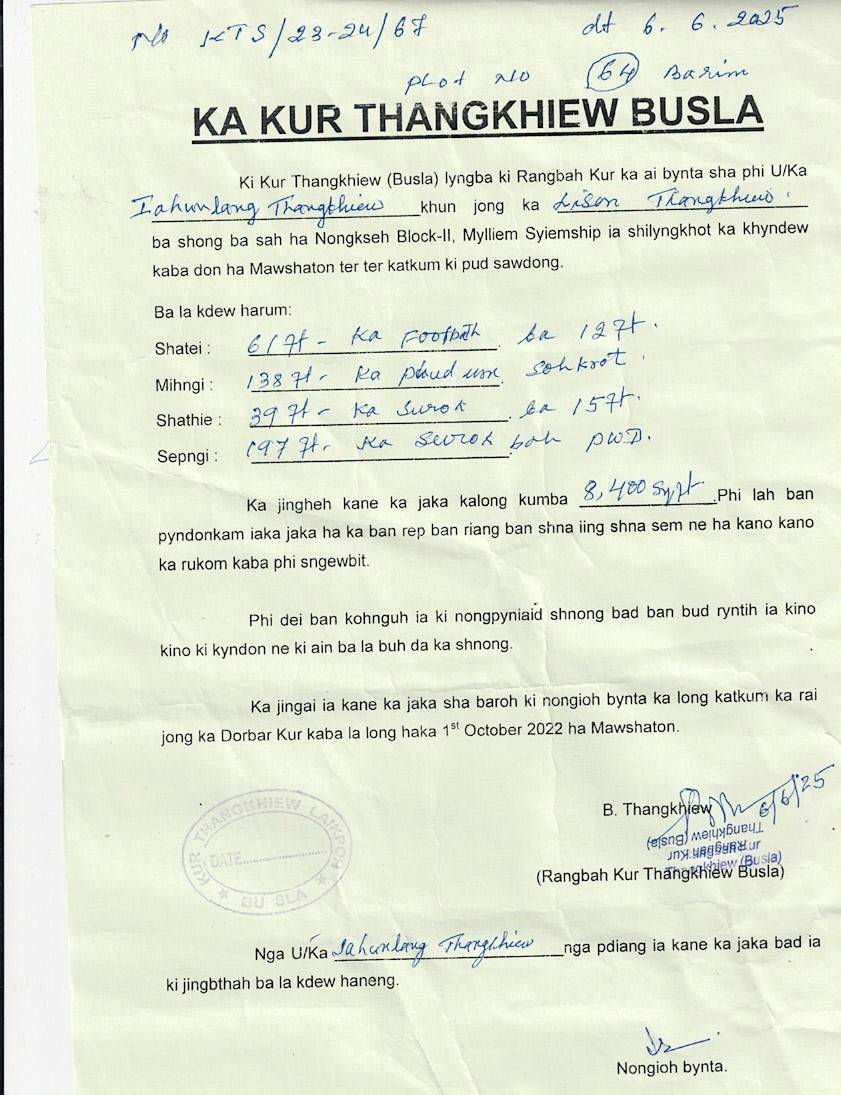 No KTS/23-24/67 dt 6.6.2025
Plot No 64 Barim
KA KUR THANGKHIEW BUSLA
Ki Kur Thangkhiew (Busla) lyngba ki Rangbah Kur ka ai bynta sha phi U/Ka
Iahunlang Thangkhiew khun jong ka Lison Thangkhiew.
ba shong ba sah ha Nongkseh Block-II, Mylliem Syiemship ia shilyngkhot ka khyndew
kaba don ha Mawshaton ter ter katkum ki pud sawdong.
Ba la kdew harum:
Shatei : 61 7t - Ka Footpath ba 12 7t.
Mihngi : 138 7t - Ka sohkrot.
Shathie : 39 7t - Ka Surok ba 15 7t.
Sepngi : 197 7t - Ka Surok bah PWD.
Ka jingheh kane ka jaka kalong kumba 8,400 Sq7t .Phi lah ban
pyndonkam iaka jaka ha ka ban rep ban riang ban shna iing shna sem ne ha kano kano
ka rukom kaba phi sngewbit.
Phi dei ban kohnguh ia ki nongpyniaid shnong bad ban bud ryntih ia kino
kino ki kyndon ne ki ain ba la buh da ka shnong.
Ka jingai ia kane ka jaka sha baroh ki nongioh bynta ka long katkum ka rai
jong ka Dorbar Kur kaba la long haka 1st October 2022 ha Mawshaton.
B. Thangkhiew 6/6/25
Rangbah Kur
Thangkhiew (Busla)
Rangbah Kur
Thangkhiew (Busla)
(Rangbah Kur Thangkhiew Busla)
KUR THANGKHIEW LAIKPOH
DATE
★ BU SLA ★
Nga U/Ka Iahunlang Thangkhiew nga pdiang ia kane ka jaka bad ia
ki jingbthah ba la kdew haneng.
Nongioh bynta.